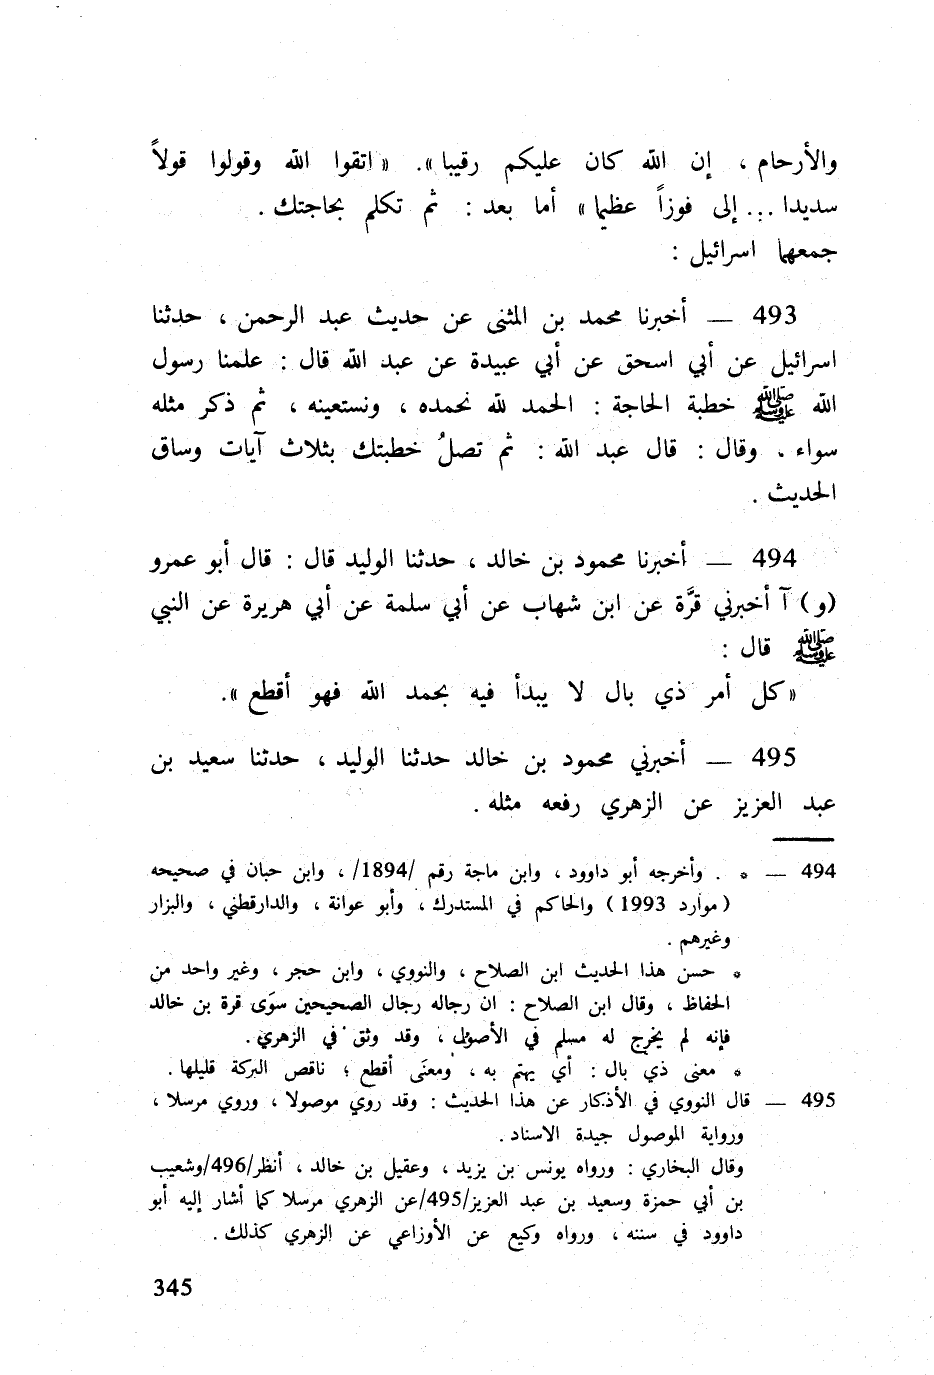 والأرحام ، إن الله كان عليكم رقيبا ». « اتقوا الله وقولوا قولاً
سديدا ... إلى فوزاً عظيما » أما بعد : ثم تكلم بحاجتك .
جمعهما اسرائيل :
493 — أخبرنا محمد بن المثنى عن حديث عبد الرحمن ، حدثنا
اسرائيل عن أبي اسحق عن أبي عبيدة عن عبد الله قال : علمنا رسول
الله ﷺ خطبة الحاجة : الحمد لله نحمده ، ونستعينه ، ثم ذكر مثله
سواء . وقال : قال عبد الله : ثم تصلُ خطبتك بثلاث آيات وساق
الحديث .
494 — أخبرنا محمود بن خالد ، حدثنا الوليد قال : قال أبو عمرو
(و) آ أخبرني قرَّة عن ابن شهاب عن أبي سلمة عن أبي هريرة عن النبي
ﷺ قال :
« كل أمر ذي بال لا يبدأ فيه بحمد الله فهو أقطع ».
495 — أخبرني محمود بن خالد حدثنا الوليد ، حدثنا سعيد بن
عبد العزيز عن الزهري رفعه مثله .
494 — * . وأخرجه أبو داوود ، وابن ماجة رقم /1894/ ، وابن حبان في صحيحه
( موارد 1993 ) والحاكم في المستدرك ، وأبو عوانة ، والدارقطني ، والبزار
وغيرهم .
* حسن هذا الحديث ابن الصلاح ، والنووي ، وابن حجر ، وغير واحد من
الحفاظ ، وقال ابن الصلاح : ان رجاله رجال الصحيحين سوَى قرة بن خالد
فإنه لم يخرج له مسلم في الأصول ، وقد وثق في الزهري .
* معنى ذي بال : أي يهتم به ، ومعنَى أقطع ؛ ناقص البركة قليلها .
495 — قال النووي في الأذكار عن هذا الحديث : وقد روي موصولا ، وروي مرسلا ،
ورواية الموصول جيدة الاسناد .
وقال البخاري : ورواه يونس بن يزيد ، وعقيل بن خالد ، أنظر/496/وشعيب
بن أبي حمزة وسعيد بن عبد العزيز/495/عن الزهري مرسلا كما أشار إليه أبو
داوود في سننه ، ورواه وكيع عن الأوزاعي عن الزهري كذلك .
345